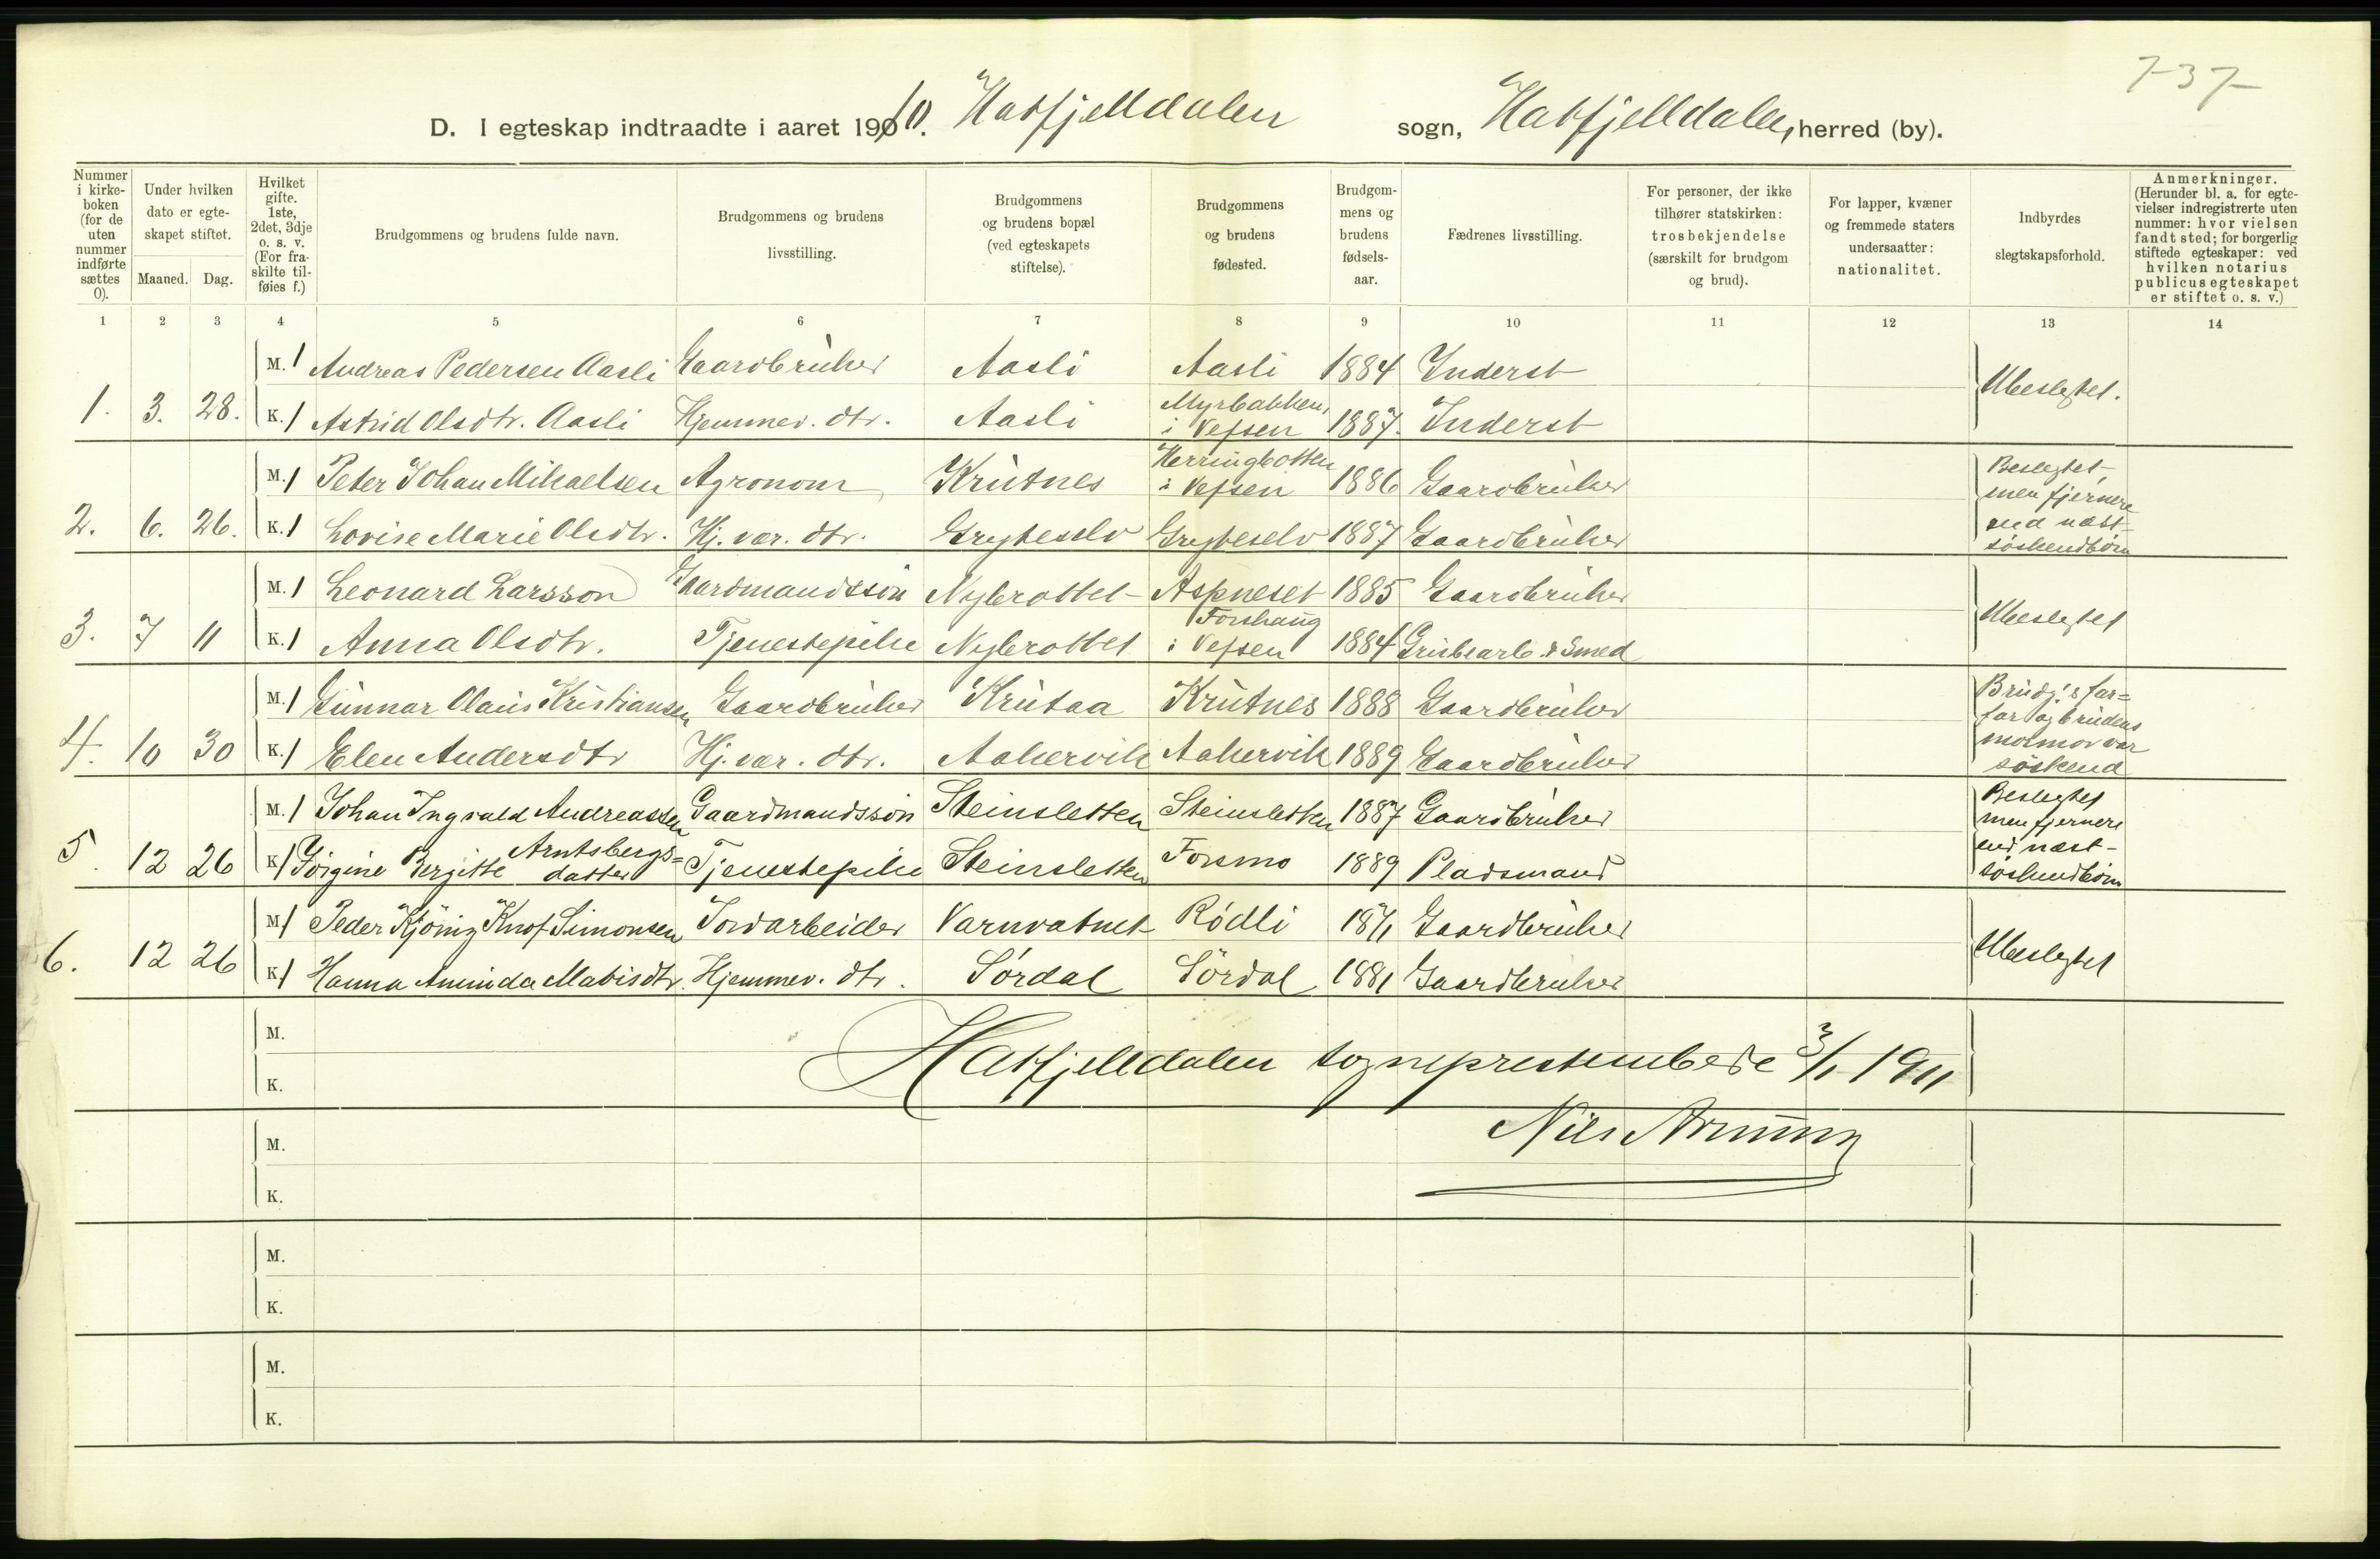 737
D. I egteskap indtraadte i aaret 1910. Hatfjelldalen sogn, Hatfjelldalen, herred (by).
Nummer i kirke-boken (for de uten nummer indførte sættes 0).
Under hvilken dato er egte-skapet stiftet. Maaned. Dag.
Hvilket gifte. 1ste, 2det, 3dje o. s. v. (For fra-skilte til-føies f.)
Brudgommens og brudens fulde navn.
Brudgommens og brudens livsstilling.
Brudgommens og brudens bopæl (ved egteskapets stiftelse).
Brudgommens og brudens fødested.
Brudgom-mens og brudens fødsels-aar.
Fædrenes livsstilling.
For personer, der ikke tilhører statskirken: trosbekjendelse (særskilt for brudgom og brud).
For lapper, kvæner og fremmede staters undersaatter: nationalitet.
Indbyrdes slegtskapsforhold.
Anmerkninger. (Herunder bl. a. for egte-vielser indregistrerte uten nummer: hvor vielsen fandt sted; for borgerlig stiftede egteskaper: ved hvilken notarius publicus egteskapet er stiftet o. s. v.)
1 2 3 4 5 6 7 8 9 10 11 12 13 14
M. 1 Andreas Pedersen Aasli Gaardbruker Aasli Aasli 1884 Inderst
1. 3. 28. K. 1 Astrid Olsdtr. Aasli Hjemmev. dtr. Aasli Myrbakken, i Vefsen 1887. Inderst Ubeslegtet.
M. 1 Peter Johan Mikaelsen Agronom Krutnes Herringbotten i Vefsen 1886 Gaardbruker
2. 6. 26. K. 1 Lovise Marie Olsdtr. Hj. vær. dtr. Gryteselv Gryteselv 1887 Gaardbruker Beslegtet men fjernere end næst-søskendbørn
M. 1 Leonard Larsson Gaardmandssøn Nybrottet Aspneset 1885 Gaardbruker
3. 7 11 K. 1 Anna Olsdtr. Tjenestepike Nybrottet Forshaug i Vefsen 1884 Grubearb. & Smed Ubeslegtet
M. 1 Gunnar Olaus Kristiansen Gaardbruker Krutaa Krutnes 1888 Gaardbruker
4. 10 30 K. 1 Elen Andersdtr Hj. vær. dtr. Aakervik Aakervik 1889 Gaardbruker Brudg's far=far og brudens mormor var søskend
M. 1 Johan Ingvald Andreassen Gaardmandssøn Steinsletten Steinsletten 1887 Gaardbruker
5. 12 26 K. 1 Jørgine Bergitte Arntsbergs=datter Tjenestepike Steinsletten Forsmo 1889 Pladsmand Beslegtet men fjernere end næst-søskendbørn
M. 1 Peder Kjönig Knof Simonsen Jordarbeider Varnvatnet Rödli 1871 Gaardbruker
6. 12 26 K. 1 Hanna Aminda Mabisdtr. Hjemmev. dtr. Sørdal Sørdal 1881 Gaardbruker Ubeslegtet
M. K.
Hatfjelldalen sogneprestembede 3/1 1911
M. K.
Nils
M.
K.
M.
K.